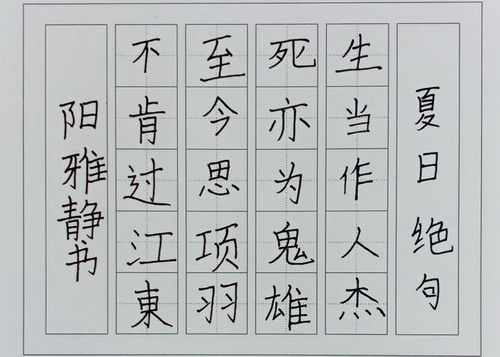 夏日绝句
生当作人杰
死亦为鬼雄
至今思项羽
不肯过江東
阳雅静书